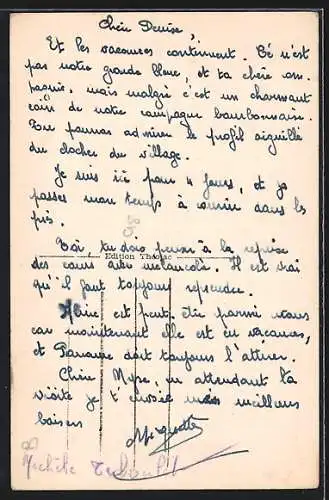 Chère Denise,
Et les vacances continuent. Ce n'est
pas notre grande bleue, et ta chère com
pagnie, mais malgré c'est un charmant
coin de notre campagne bourbonnaise.
Tu pourras admirer le profil aiguillé
du clocher du village.
Je suis ici pour 4 jours, et je
passes mon temps à courir dans les
prés.
Toi, tu dois penser à la reprise
Edition Théojac
des cours avec mélancolie. Il est vrai
qu'il faut toujours reprendre.
Hélène est peut-être parmi vous
car maintenant elle est en vacances,
et doit toujours l'attirer.
Chère Myse, en attendant ta
visite je t'envoie mes meilleurs
baisers